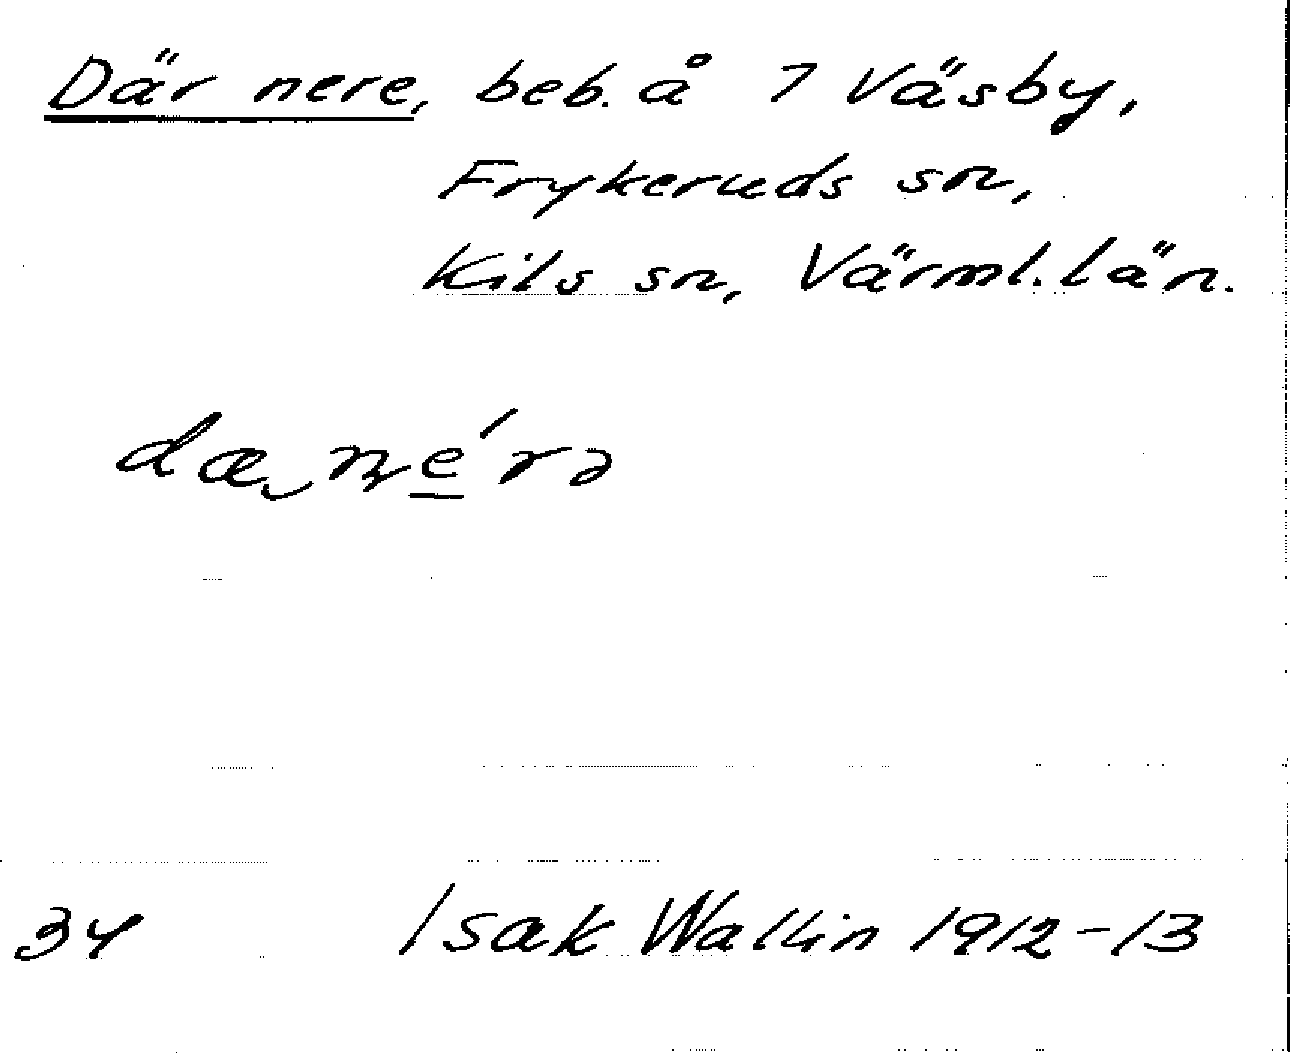 Där nere, beb. å 7 Väsby,
Frykeruds sn,
Kils sn, Värml. län.
dæ‿né̱rə
34 Isak Wallin 1912-13